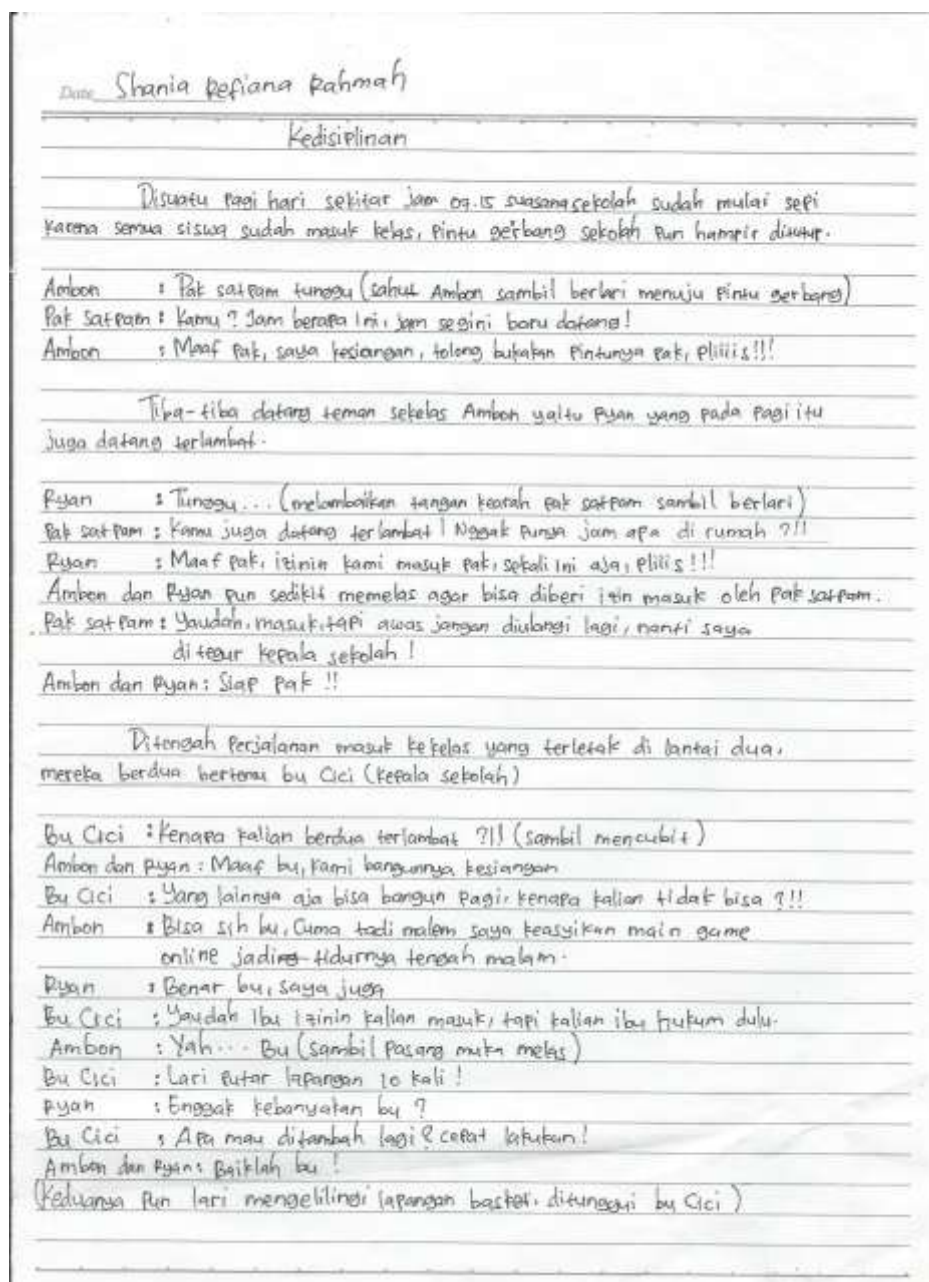 Date Shania Refiana Rahmah
Kedisiplinan
Disuatu pagi hari sekitar jam 07.15 suasana sekolah sudah mulai sepi
karena semua siswa sudah masuk kelas, pintu gerbang sekolah pun hampir ditutup.
Ambon : Pak satpam tunggu (sahut Ambon sambil berlari menuju pintu gerbang)
Pak Satpam : Kamu ? Jam berapa ini, jam segini baru datang !
Ambon : Maaf Pak, saya kesiangan, tolong bukakan pintunya pak, pliiiis!!!
Tiba-tiba datang teman sekelas Ambon yaitu Ryan yang pada pagi itu
juga datang terlambat.
Ryan : Tunggu... (melambaikan tangan kearah pak satpam sambil berlari)
Pak satpam : Kamu juga datang terlambat ! Nggak punya jam apa di rumah ?!!
Ryan : Maaf pak, izinin kami masuk pak, sekali ini aja, pliiis !!!
Ambon dan Ryan pun sedikit memelas agar bisa diberi izin masuk oleh pak satpam.
Pak satpam : Yaudah, masuk, tapi awas jangan diulangi lagi, nanti saya
di tegur kepala sekolah !
Ambon dan Ryan : Siap pak !!
Ditengah perjalanan masuk kekelas yang terletak di lantai dua,
mereka berdua bertemu bu Cici (kepala sekolah)
Bu Cici : Kenapa kalian berdua terlambat ?!! (sambil mencubit)
Ambon dan Ryan : Maaf bu, kami bangunnya kesiangan
Bu Cici : Yang lainnya aja bisa bangun pagi, kenapa kalian tidak bisa ?!!
Ambon : Bisa sih bu, Cuma tadi malem saya keasyikan main game
online jadi tidurnya tengah malam.
Ryan : Benar bu, saya juga
Bu Cici : Yaudah ibu izinin kalian masuk, tapi kalian ibu hukum dulu.
Ambon : Yah... Bu (sambil pasang muka melas)
Bu Cici : Lari putar lapangan 10 kali !
Ryan : Enggak kebanyakan bu ?
Bu Cici : Apa mau ditambah lagi ? cepat lakukan !
Ambon dan Ryan : Baiklah bu !
(Keduanya pun lari mengelilingi lapangan basket, ditunggui bu Cici )